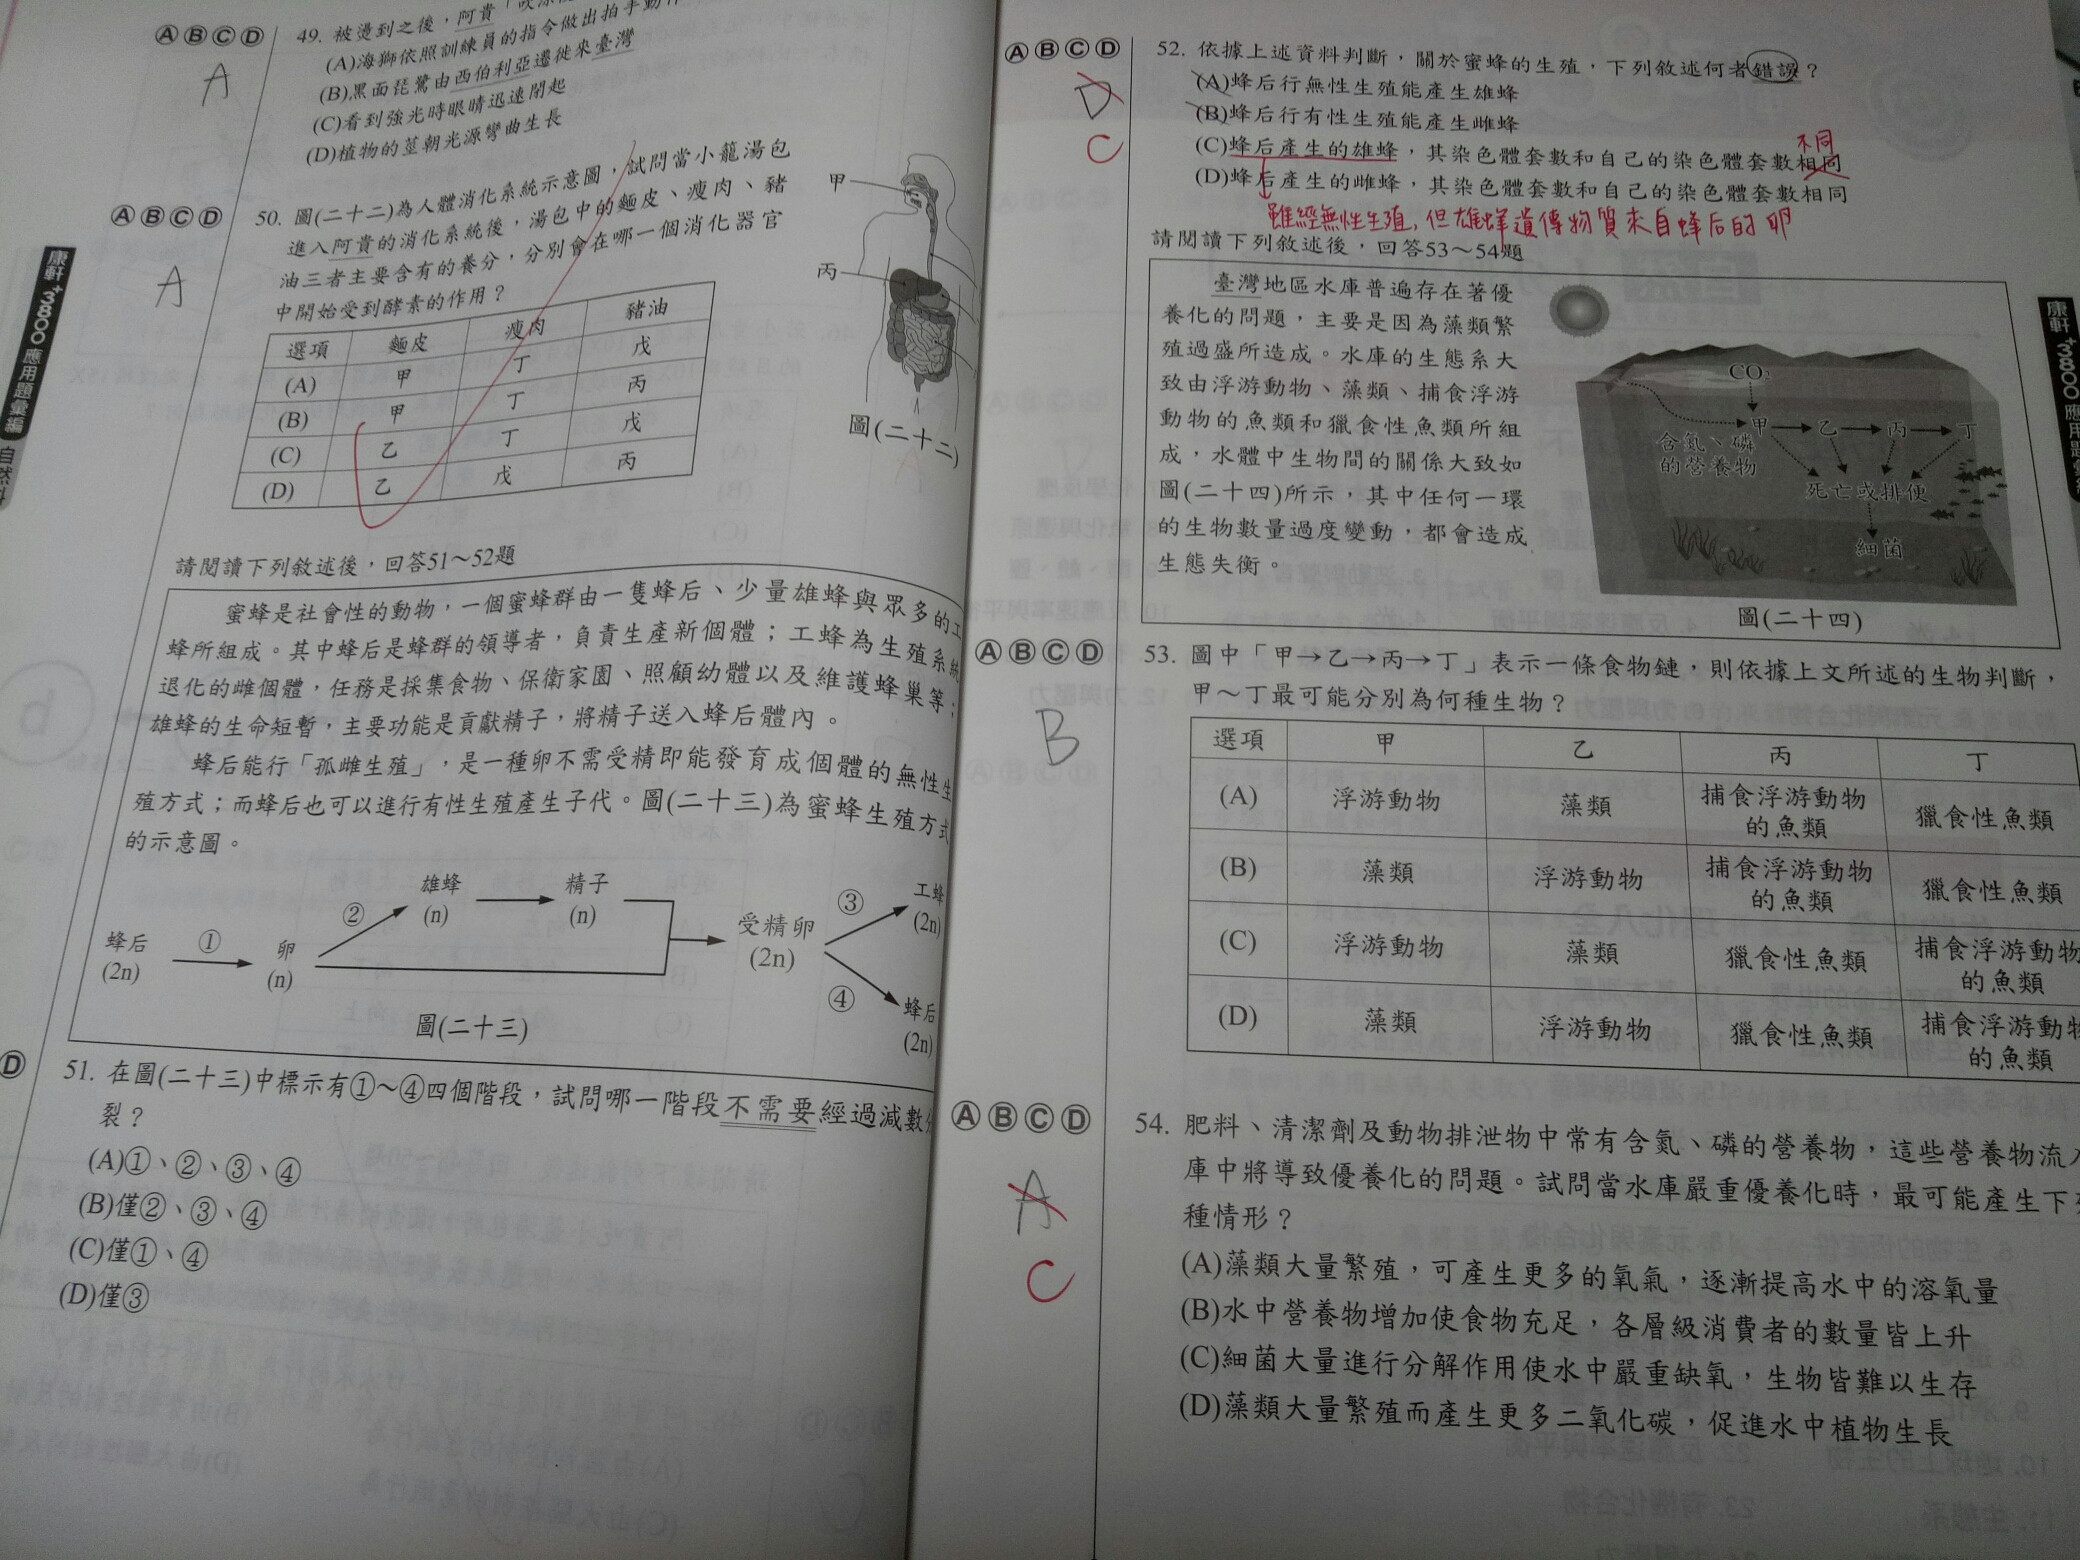 ⒶⒷⒸⒹ
A
49. 被燙到之後，阿貴「吹
(A)海獅依照訓練員的指令做出拍手動作
(B)黑面琵鷺由西伯利亞遷徙來臺灣
(C)看到強光時眼睛迅速閉起
(D)植物的莖朝光源彎曲生長
ⒶⒷⒸⒹ
A
50. 圖(二十二)為人體消化系統示意圖，試問當小籠湯包
進入阿貴的消化系統後，湯包中的麵皮、瘦肉、豬
油三者主要含有的養分，分別會在哪一個消化器官
中開始受到酵素的作用？
選項 麵皮 瘦肉 豬油
(A) 甲 丁 戊
(B) 甲 丁 丙
(C) 乙 丁 戊
(D) 乙 戊 丙
甲
丙
圖(二十二)
康軒 3800 應用題彙編 自然科
請閱讀下列敘述後，回答51～52題
蜜蜂是社會性的動物，一個蜜蜂群由一隻蜂后、少量雄蜂與眾多的工
蜂所組成。其中蜂后是蜂群的領導者，負責生產新個體；工蜂為生殖系統
退化的雌個體，任務是採集食物、保衛家園、照顧幼體以及維護蜂巢等；
雄蜂的生命短暫，主要功能是貢獻精子，將精子送入蜂后體內。
蜂后能行「孤雌生殖」，是一種卵不需受精即能發育成個體的無性生
殖方式；而蜂后也可以進行有性生殖產生子代。圖(二十三)為蜜蜂生殖方式
的示意圖。
蜂后 (2n)
①
卵 (n)
②
雄蜂 (n)
精子 (n)
受精卵 (2n)
③
工蜂 (2n)
④
蜂后 (2n)
圖(二十三)
Ⓓ
51. 在圖(二十三)中標示有①～④四個階段，試問哪一階段不需要經過減數
裂？
(A)①、②、③、④
(B)僅②、③、④
(C)僅①、④
(D)僅③
ⒶⒷⒸⒹ
D
C
52. 依據上述資料判斷，關於蜜蜂的生殖，下列敘述何者錯誤？
(A)蜂后行無性生殖能產生雄蜂
(B)蜂后行有性生殖能產生雌蜂
不同
(C)蜂后產生的雄蜂，其染色體套數和自己的染色體套數相同
(D)蜂后產生的雌蜂，其染色體套數和自己的染色體套數相同
雖經無性生殖，但雄蜂遺傳物質來自蜂后的卵
請閱讀下列敘述後，回答53～54題
臺灣地區水庫普遍存在著優
養化的問題，主要是因為藻類繁
殖過盛所造成。水庫的生態系大
致由浮游動物、藻類、捕食浮游
動物的魚類和獵食性魚類所組
成，水體中生物間的關係大致如
圖(二十四)所示，其中任何一環
的生物數量過度變動，都會造成
生態失衡。
CO₂
甲 乙 丙 丁
含氮、磷
的營養物
死亡或排便
細菌
圖(二十四)
康軒 3800 應用題
ⒶⒷⒸⒹ
B
53. 圖中「甲→乙→丙→丁」表示一條食物鏈，則依據上文所述的生物判斷，
甲～丁最可能分別為何種生物？
選項 甲 乙 丙 丁
(A) 浮游動物 藻類 捕食浮游動物的魚類 獵食性魚類
(B) 藻類 浮游動物 捕食浮游動物的魚類 獵食性魚類
(C) 浮游動物 藻類 獵食性魚類 捕食浮游動物的魚類
(D) 藻類 浮游動物 獵食性魚類 捕食浮游動物的魚類
ⒶⒷⒸⒹ
A
C
54. 肥料、清潔劑及動物排泄物中常有含氮、磷的營養物，這些營養物流入
庫中將導致優養化的問題。試問當水庫嚴重優養化時，最可能產生下列
種情形？
(A)藻類大量繁殖，可產生更多的氧氣，逐漸提高水中的溶氧量
(B)水中營養物增加使食物充足，各層級消費者的數量皆上升
(C)細菌大量進行分解作用使水中嚴重缺氧，生物皆難以生存
(D)藻類大量繁殖而產生更多二氧化碳，促進水中植物生長